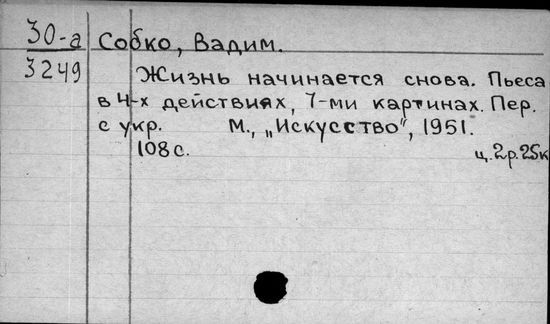 30-а
3249
Собко, Вадим.
Жизнь начинается снова. Пьеса
в 4-х действиях, 7-ми картинах. Пер.
с укр. М., „Искусство", 1951.
108 с. ц. 2р. 25к